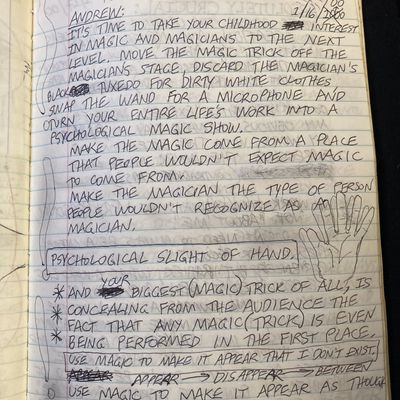 ANDREW: 1/16/2000
IT'S TIME TO TAKE YOUR CHILDHOOD INTEREST
IN MAGIC AND MAGICIANS TO THE NEXT
LEVEL. MOVE THE MAGIC TRICK OFF THE
MAGICIANS STAGE, DISCARD THE MAGICIAN'S
BLACK TUXEDO FOR DIRTY WHITE CLOTHES
SWAP THE WAND FOR A MICROPHONE AND
TURN YOUR ENTIRE LIFE'S WORK INTO A
PSYCHOLOGICAL MAGIC SHOW.
MAKE THE MAGIC COME FROM A PLACE
THAT PEOPLE WOULDN'T EXPECT MAGIC
TO COME FROM.
MAKE THE MAGICIAN THE TYPE OF PERSON
PEOPLE WOULDN'T RECOGNIZE AS A
MAGICIAN.
PSYCHOLOGICAL SLIGHT OF HAND.
* AND YOUR BIGGEST (MAGIC) TRICK OF ALL, IS
* CONCEALING FROM THE AUDIENCE THE
* FACT THAT ANY MAGIC (TRICK) IS EVEN
BEING PERFORMED IN THE FIRST PLACE.
USE MAGIC TO MAKE IT APPEAR THAT I DON'T EXIST.
APPEAR → DISAPPEAR → BETWEEN
USE MAGIC TO MAKE IT APPEAR AS THOUGH